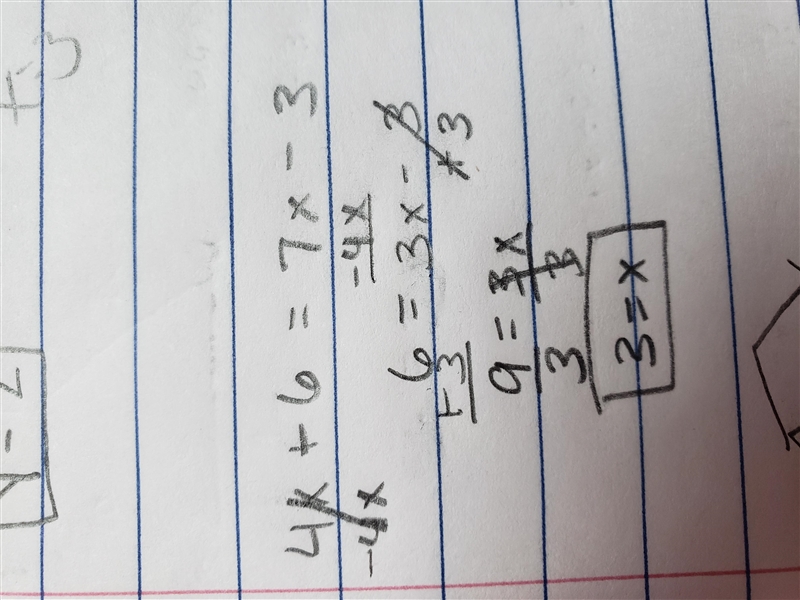 +3
4x + 6 = 7x - 3
-4x -4x
6 = 3x - 3
+3 +3
9 = 3x
3 3
3 = x